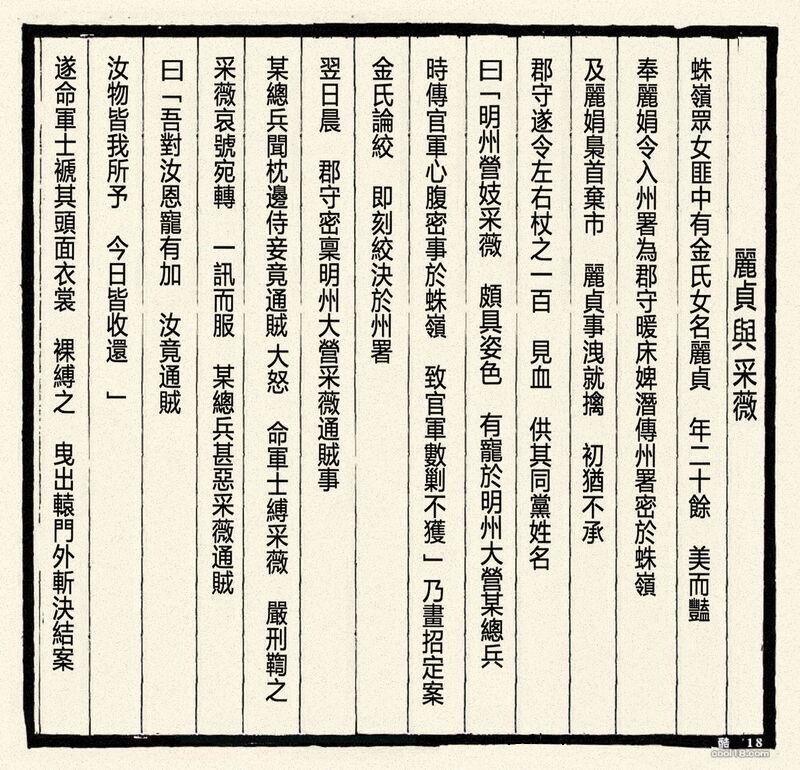 麗貞與采薇
蛛嶺眾女匪中有金氏女名麗貞　年二十餘　美而豔
奉麗娟令入州署為郡守暖床婢潛傳州署密於蛛嶺
及麗娟梟首棄市　麗貞事洩就擒　初猶不承
郡守遂令左右杖之一百　見血　供其同黨姓名
曰「明州營妓采薇　頗具姿色　有寵於明州大營某總兵
時傳官軍心腹密事於蛛嶺　致官軍數剿不獲」乃畫招定案
金氏論絞　即刻絞決於州署
翌日晨　郡守密稟明州大營采薇通賊事
某總兵聞枕邊侍妾竟通賊 大怒　命軍士縛采薇　嚴刑鞫之
采薇哀號宛轉　一訊而服　某總兵甚惡采薇通賊
曰「吾對汝恩寵有加　汝竟通賊
汝物皆我所予　今日皆收還　」
遂命軍士褫其頭面衣裳　裸縛之　曳出轅門外斬決結案
酷 18
cool18.com